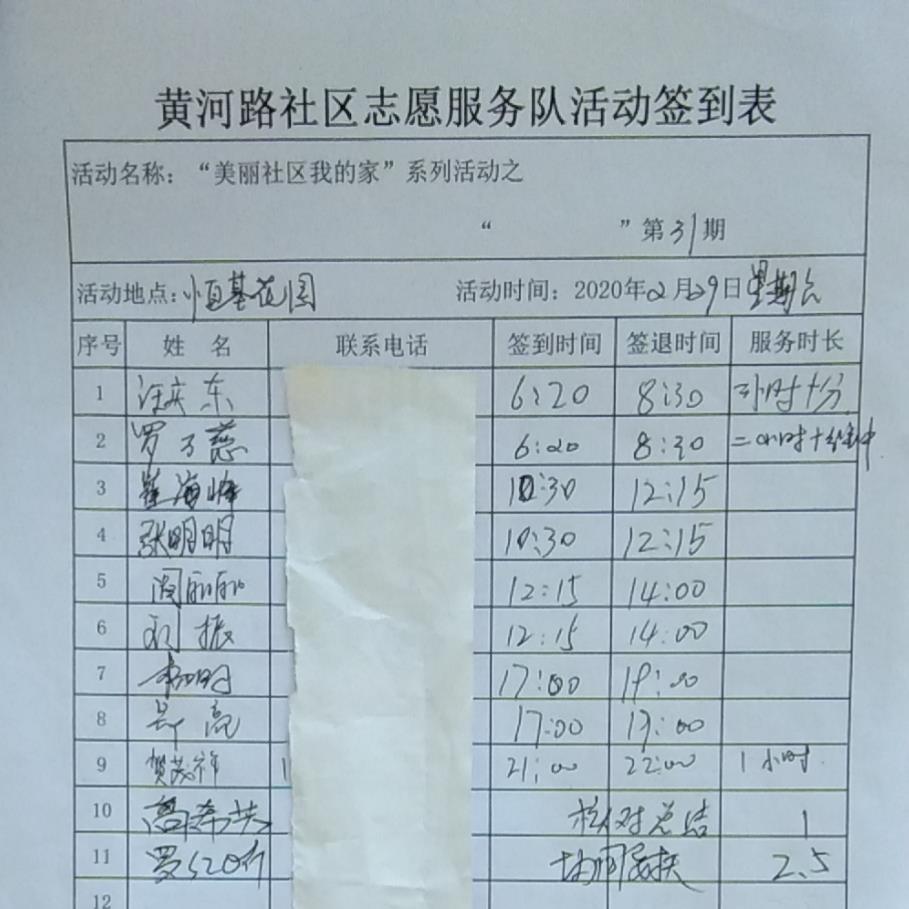 黄河路社区志愿服务队活动签到表
活动名称：“美丽社区我的家”系列活动之
“ ”第31期
活动地点：恒基花园 活动时间：2020年2月29日星期六
序号 姓名 联系电话 签到时间 签退时间 服务时长
1 汪庆东 6:20 8:30 二小时十分
2 罗 慈 6:20 8:30 二小时十分钟
3 崔海峰 10:30 12:15
4 张明明 10:30 12:15
5 闵丽丽 12:15 14:00
6 振 12:15 14:00
7 17:00 19:00
8 亮 17:00 19:00
9 贺茂祥 21:00 22:00 1小时
10 高希 核对总结 1
11 罗 2.5
12